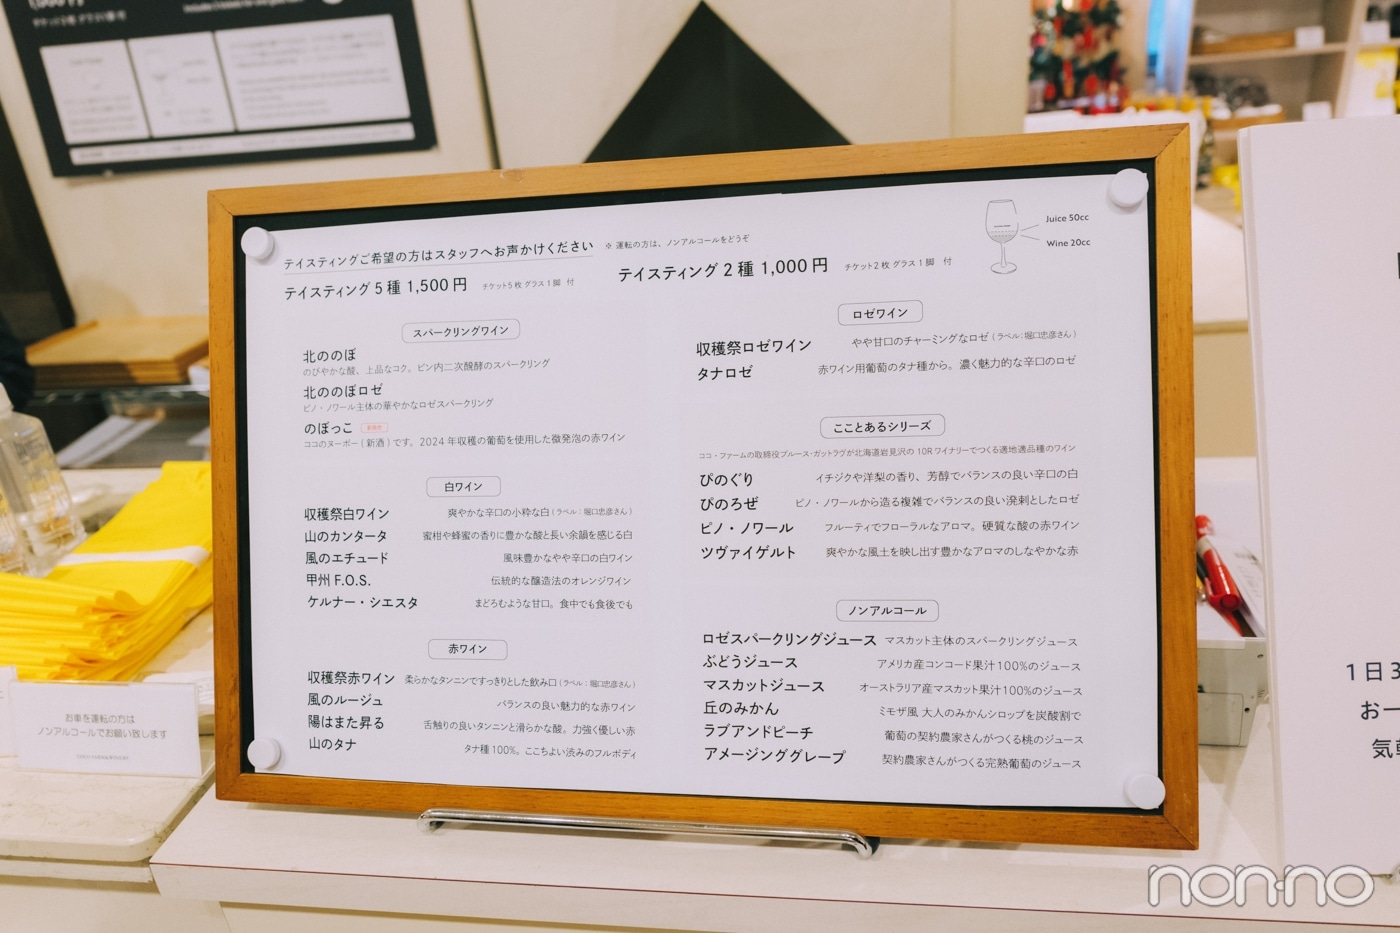 テイスティングご希望の方はスタッフへお声かけください ※ 運転の方は、ノンアルコールをどうぞ
テイスティング 5 種 1,500 円 チケット5 枚 グラス 1 脚 付
テイスティング 2 種 1,000 円 チケット2 枚 グラス 1 脚 付
Juice 50cc
Wine 20cc
スパークリングワイン
北ののぼ
のびやかな酸、上品なコク。ビン内二次醗酵のスパークリング
北ののぼロゼ
ピノ・ノワール主体の華やかなロゼスパークリング
のぼっこ
ココのヌーボー ( 新酒 ) です。2024 年収穫の葡萄を使用した微発泡の赤ワイン
白ワイン
収穫祭白ワイン 爽やかな辛口の小粋な白 ( ラベル：堀口忠彦さん )
山のカンタータ 蜜柑や蜂蜜の香りに豊かな酸と長い余韻を感じる白
風のエチュード 風味豊かなやや辛口の白ワイン
甲州 F.O.S. 伝統的な醸造法のオレンジワイン
ケルナー・シエスタ まどろむような甘口。食中でも食後でも
赤ワイン
収穫祭赤ワイン 柔らかなタンニンですっきりとした飲み口 ( ラベル：堀口忠彦さん )
風のルージュ バランスの良い魅力的な赤ワイン
陽はまた昇る 舌触りの良いタンニンと滑らかな酸。力強く優しい赤
山のタナ タナ種 100%。ここちよい渋みのフルボディ
ロゼワイン
収穫祭ロゼワイン やや甘口のチャーミングなロゼ ( ラベル：堀口忠彦さん )
タナロゼ 赤ワイン用葡萄のタナ種から。濃く魅力的な辛口のロゼ
こことあるシリーズ
ココ・ファームの取締役ブルース・ガットラヴが北海道岩見沢の 10R ワイナリーでつくる適地適品種のワイン
ぴのぐり イチジクや洋梨の香り、芳醇でバランスの良い辛口の白
ぴのろぜ ピノ・ノワールから造る複雑でバランスの良い溌剌としたロゼ
ピノ・ノワール フルーティでフローラルなアロマ。硬質な酸の赤ワイン
ツヴァイゲルト 爽やかな風土を映し出す豊かなアロマのしなやかな赤
ノンアルコール
ロゼスパークリングジュース マスカット主体のスパークリングジュース
ぶどうジュース アメリカ産コンコード果汁100%のジュース
マスカットジュース オーストラリア産マスカット果汁100%のジュース
丘のみかん ミモザ風 大人のみかんシロップを炭酸割で
ラブアンドピーチ 葡萄の契約農家さんがつくる桃のジュース
アメージンググレープ 契約農家さんがつくる完熟葡萄のジュース
お車を運転の方は
ノンアルコールでお願い致します
1日3
お一
気
non-no